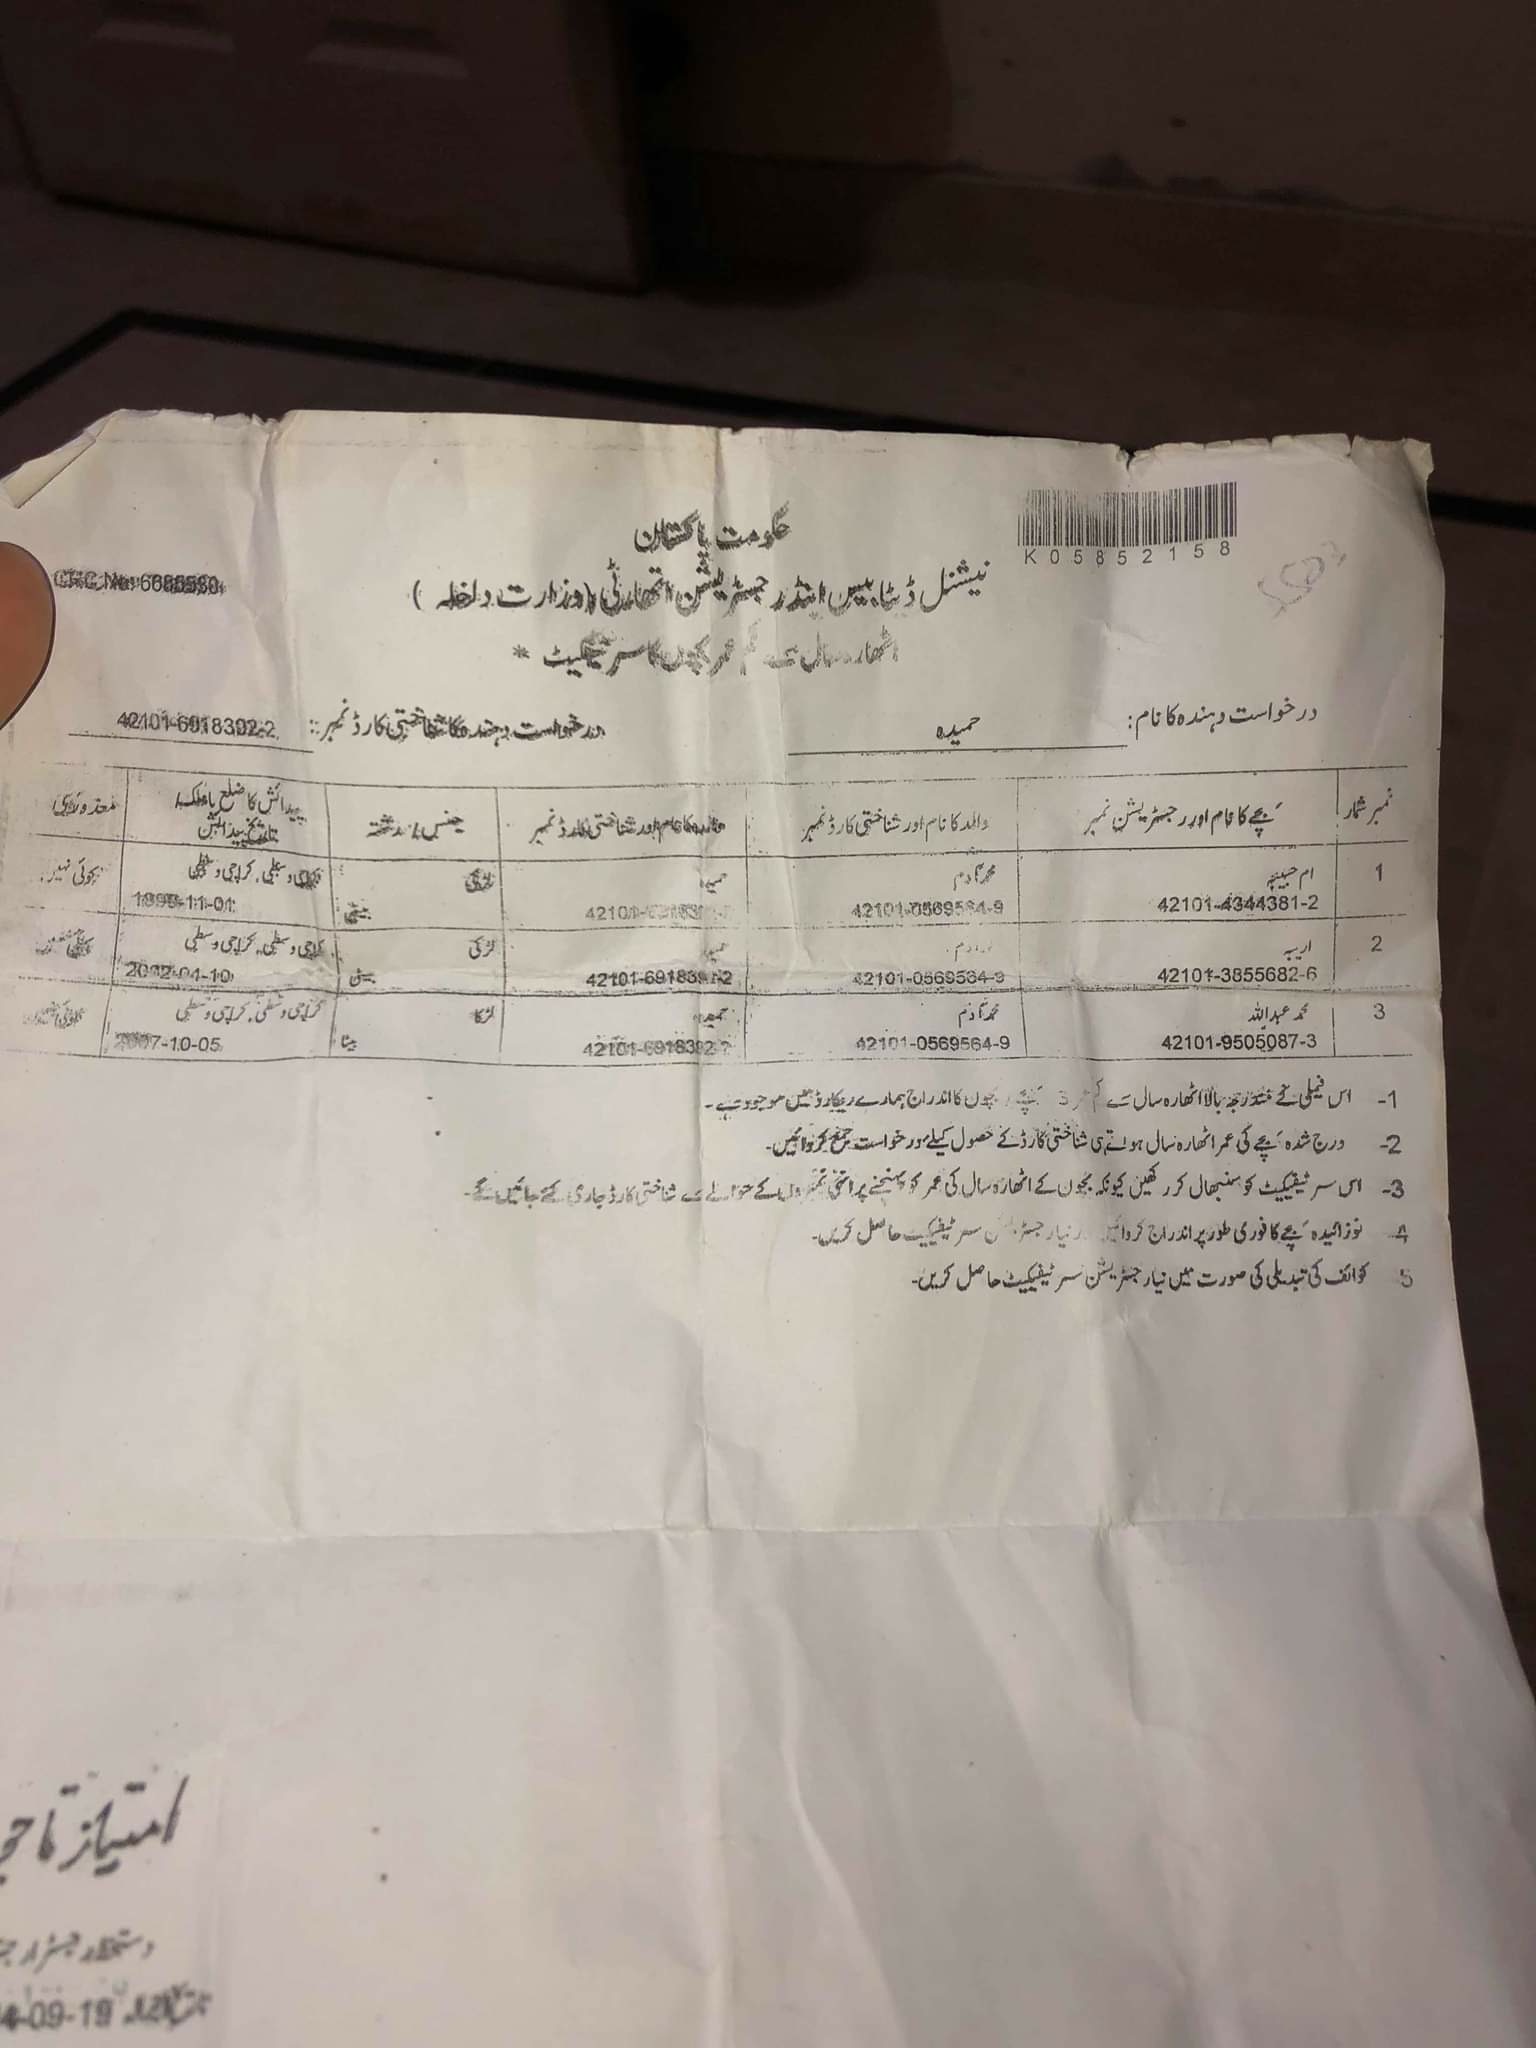 K05852158
حکومت پاکستان
CRC No:
نیشنل ڈیٹا بیس اینڈ رجسٹریشن اتھارٹی (وزارت داخلہ)
اٹھارہ سال سے کم عمر بچوں کا سرٹیفکیٹ *
درخواست دہندہ کا نام: حمیدہ
درخواست دہندہ کا شناختی کارڈ نمبر: 42101-6918392-2
نمبر شمار
بچے کا نام اور رجسٹریشن نمبر
والد کا نام اور شناختی کارڈ نمبر
والدہ کا نام اور شناختی کارڈ نمبر
جنس / رشتہ
پیدائش کا ضلع یا ملک /
تاریخ پیدائش
معذوری
1 ام حبیبہ محمد آدم حمیدہ لڑکی کراچی وسطی، کراچی وسطی کوئی نہیں
42101-4344381-2 42101-0569564-9 بیٹی 1999-11-01
2 اریبہ آدم لڑکی کراچی وسطی، کراچی وسطی
42101-3855682-6 42101-0569564-9 42101-6918392-2 بیٹی
3 محمد عبداللہ محمد آدم حمیدہ لڑکا کراچی وسطی، کراچی وسطی
42101-9505087-3 42101-0569564-9 42101-6918392-2 بیٹا 2007-10-05
1- اس فیملی کے مندرجہ بالا اٹھارہ سال سے کم عمر 3 بچوں کا اندراج ہمارے ریکارڈ میں موجود ہے۔
2- درج شدہ بچے کی عمر اٹھارہ سال ہوتے ہی شناختی کارڈ کے حصول کیلئے درخواست جمع کروائیں۔
3- اس سرٹیفیکیٹ کو سنبھال کر رکھیں کیونکہ بچوں کے اٹھارہ سال کی عمر کو پہنچنے پر انہی نمبروں کے حوالے سے شناختی کارڈ جاری کئے جائیں گے۔
4- نوزائیدہ بچے کا فوری طور پر اندراج کروائیں اور نیا رجسٹریشن سرٹیفیکیٹ حاصل کریں۔
5 کوائف کی تبدیلی کی صورت میں نیا رجسٹریشن سرٹیفیکیٹ حاصل کریں۔
امتیاز تاج
دستخط رجسٹرار
4-09-19